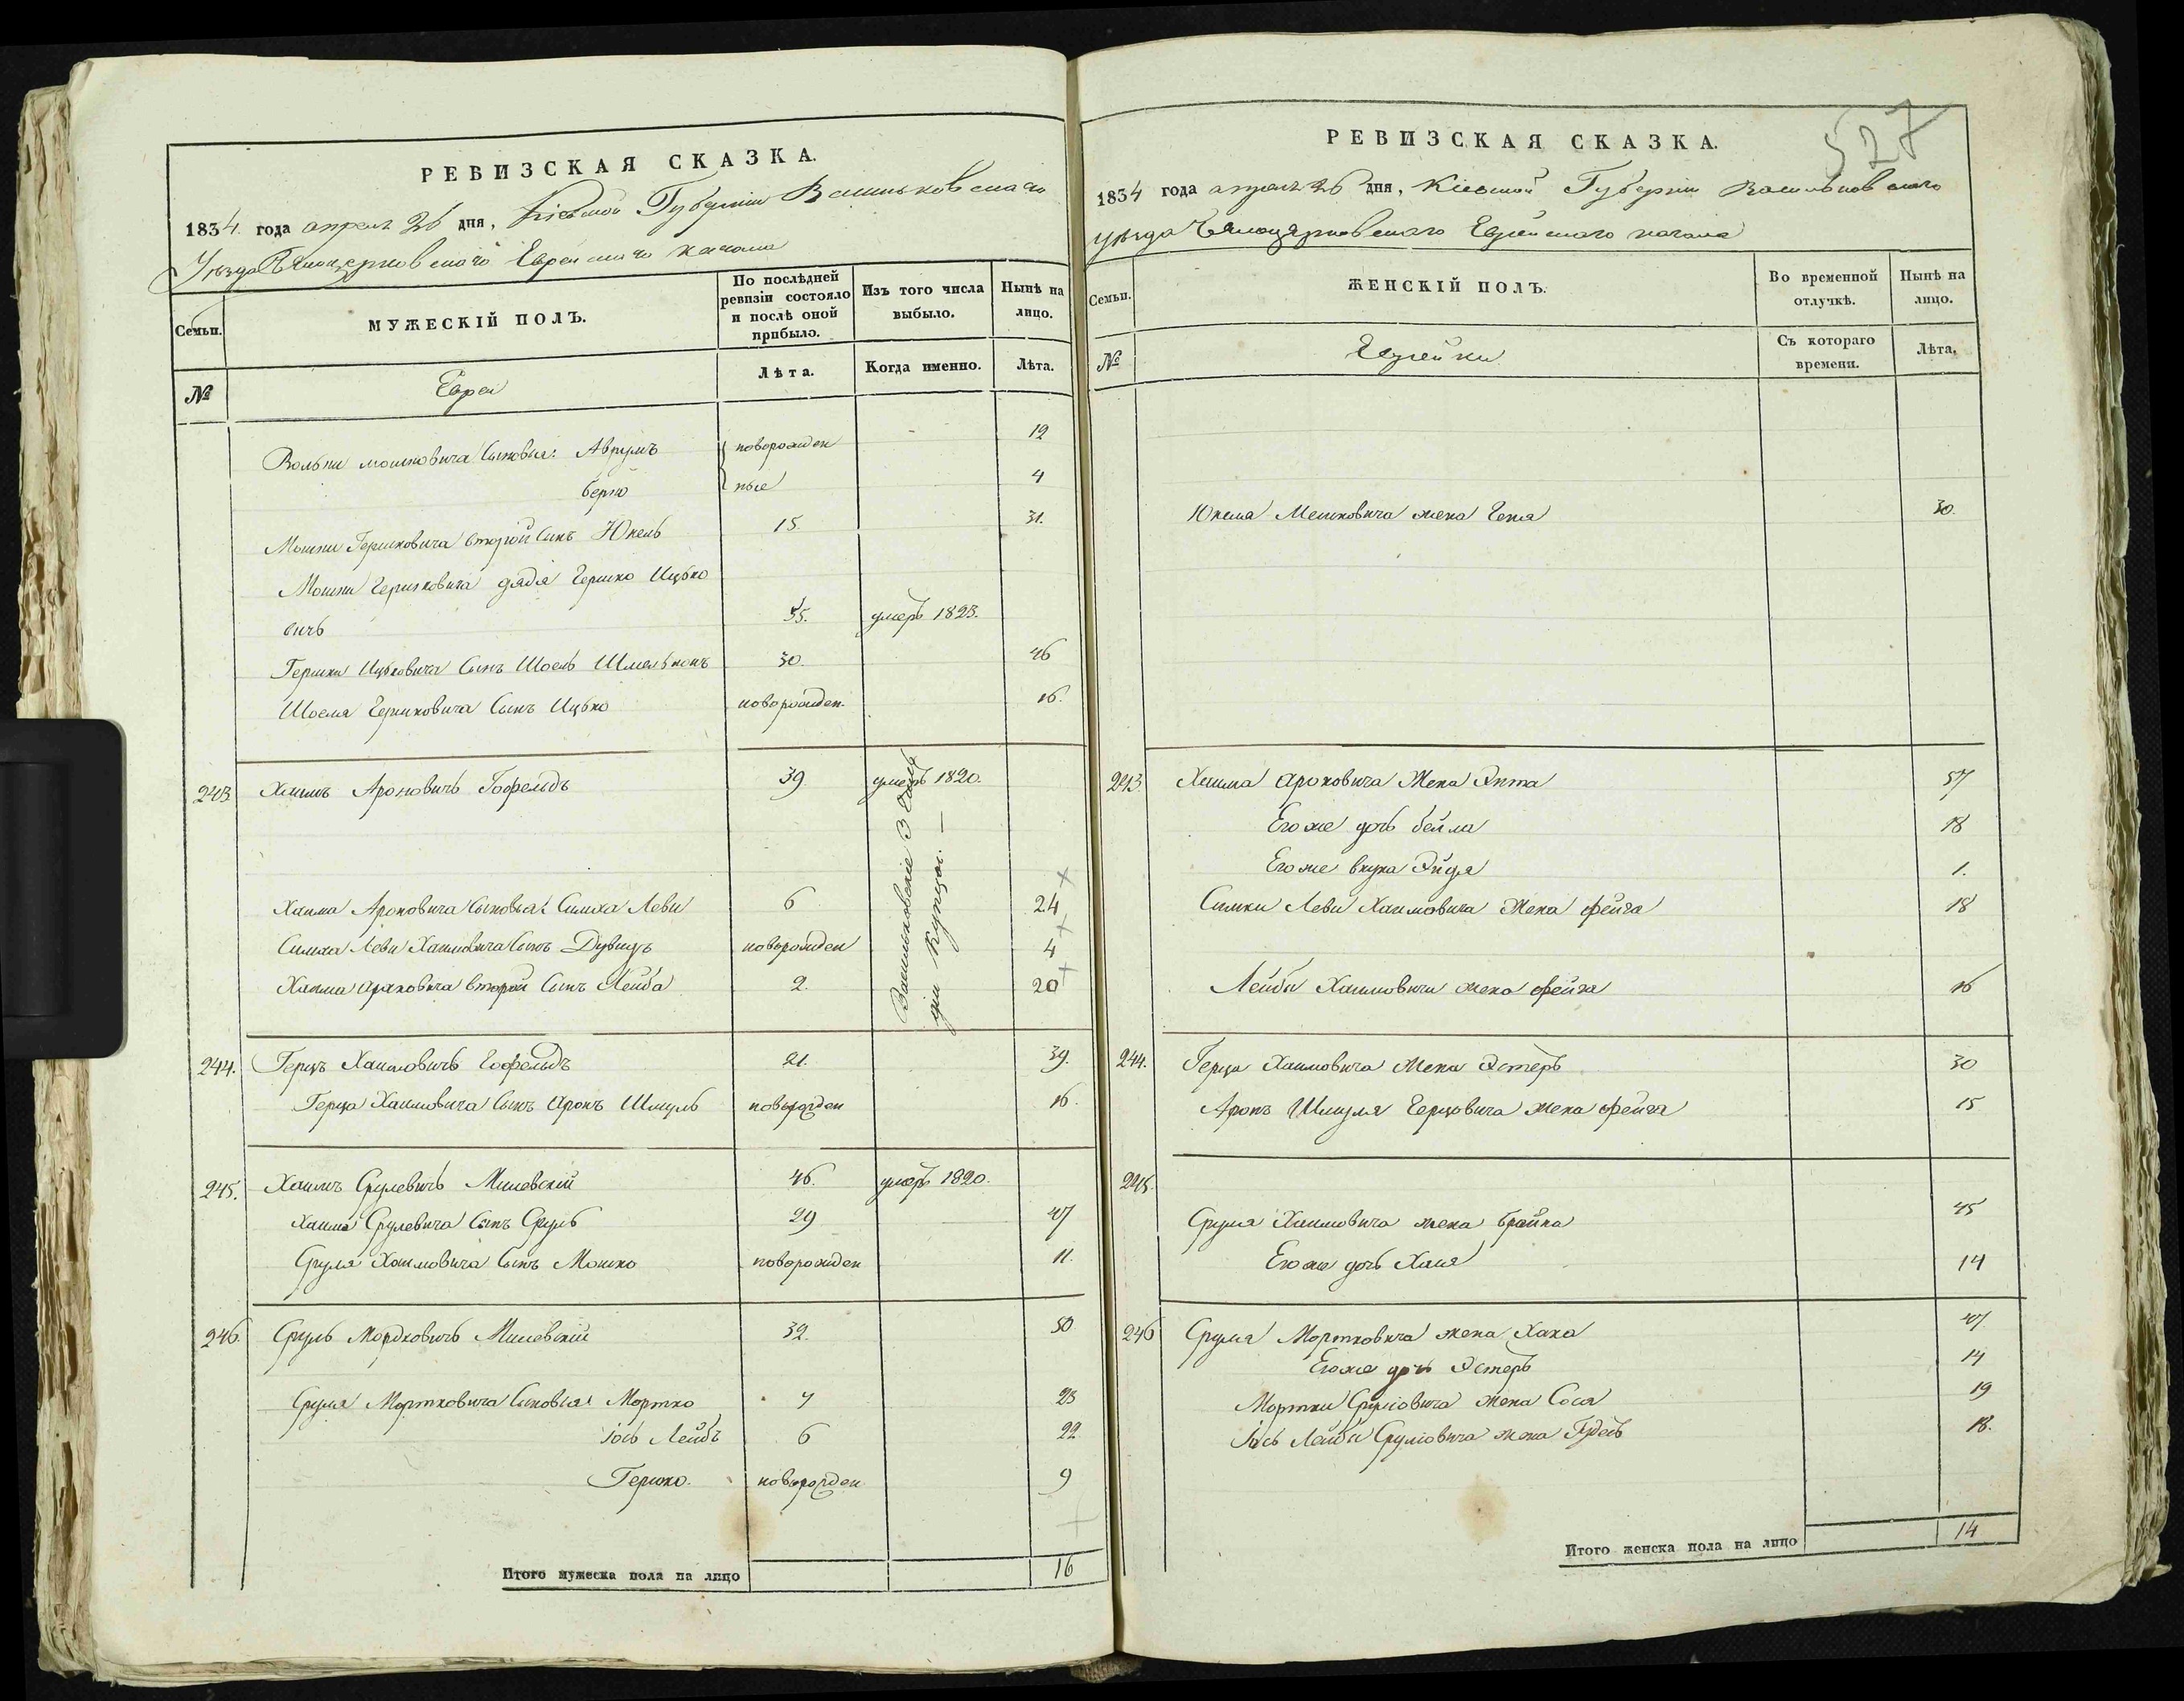 РЕВИЗСКАЯ СКАЗКА.
1834 года апреля 26 дня, Кіевской Губерніи Васильковскаго
Уезда Бѣлоцерковскаго Еврейскаго кагала
Семьи.
МУЖЕСКІЙ ПОЛЪ.
По послѣдней ревизіи состояло и послѣ оной прибыло.
Изъ того числа выбыло.
Нынѣ на лицо.
№
Евреи
Лѣта.
Когда именно.
Лѣта.
Вольки Мошковича Сыновья: Аврумъ новорожден 12
Берко ные 4
Мошки Гершковича второй Сынъ Юкель 15. 31.
Мошки Гершковича дядя Гершко Ицько
вичъ 55. умеръ 1823.
Гершки Ицьковича Сынъ Шоель Шмельконъ 30. 46
Шоеля Гершковича Сынъ Ицько новорожден. 16.
243 Хаимъ Ароновичъ Гофельдъ 39 умеръ 1820.
Хаима Ароновича Сыновья: Симха Леви 6 24
Симха Леви Хаимовича Сынъ Дувидъ новорожден 4
Хаима Ароновича второй Сынъ Лейба 2. 20
Васильковскіе 3 Гиль
діи Купцы. —
244. Герцъ Хаимовичъ Гофельдъ 21. 39.
Герца Хаимовича Сынъ Аронъ Шмуль новорожден 16.
245. Хаимъ Срулевичъ Милевскій 46. умеръ 1820.
Хаима Срулевича Сынъ Сруль 29 47
Сруля Хаимовича Сынъ Мошко новорожден 11.
246 Сруль Мордковичъ Милевскій 32. 50
Сруля Мортковича Сыновья: Мортко 7 23
Іось Лейбъ 6 22.
Гершко. новорожден 9
Итого мужеска пола на лицо 16
527
РЕВИЗСКАЯ СКАЗКА.
1834 года апреля 26 дня, Кіевской Губерніи Васильковскаго
уѣзда Бѣлоцерковскаго Еврейскаго кагала
Семьи.
ЖЕНСКІЙ ПОЛЪ.
Во временной отлучкѣ.
Нынѣ на лицо.
№
Еврейки
Съ котораго времени.
Лѣта.
Юкеля Мошковича жена Геня 30.
243. Хаима Ароновича Жена Энта 57
Его же дочь Бейла 18
Его же внука Эйдя 1.
Симхи Леви Хаимовича Жена Фейга 18
Лейби Хаимовича жена Фейга 16
244. Герца Хаимовича Жена Эстеръ 30
Аронъ Шмуля Герцовича жена Фейга 15
245.
Сруля Хаимовича жена Брайна 45
Его же дочь Ханя 14
246 Сруля Мортковича жена Хана 47.
Его же дочь Эстеръ 14
Мортки Срулiовича жена Сося 19
Іось Лейби Срулiовича жена Гудель 18.
Итого женска пола на лицо 14